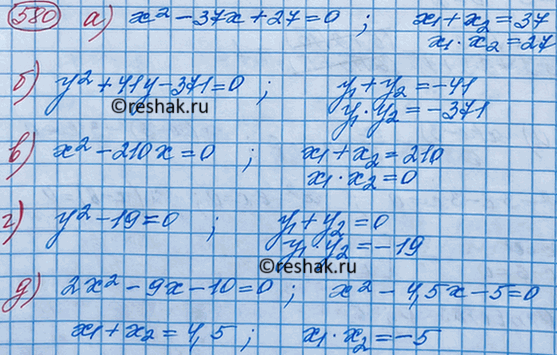 580 а) x² - 37x + 27 = 0 ; x₁ + x₂ = 37
x₁ · x₂ = 27
б) y² + 41y - 371 = 0 ; y₁ + y₂ = -41
©reshak.ru y₁ · y₂ = -371
в) x² - 210x = 0 ; x₁ + x₂ = 210
x₁ · x₂ = 0
г) y² - 19 = 0 ; y₁ + y₂ = 0
y₁ y₂ = -19
©reshak.ru
д) 2x² - 9x - 10 = 0 ; x² - 4,5x - 5 = 0
x₁ + x₂ = 4,5 ; x₁ · x₂ = -5